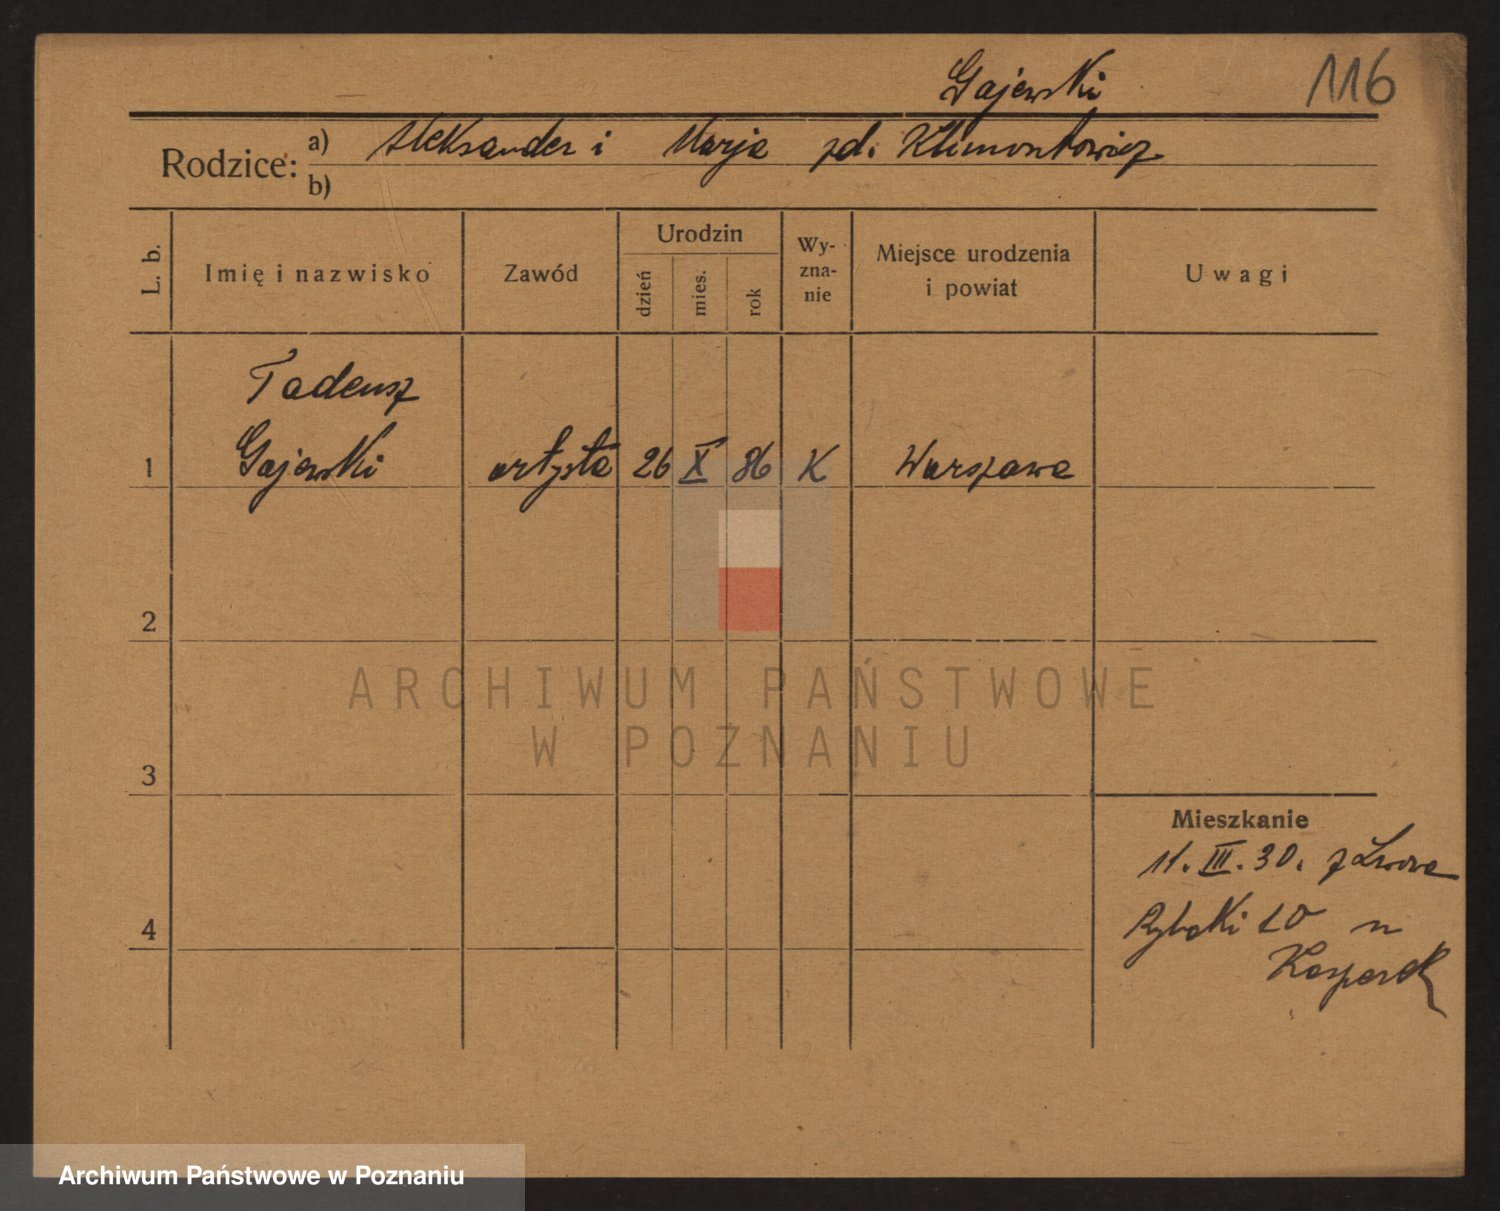 Gajewski
116
Rodzice: a) Aleksander i Marja zd. Klimontowicz
b)
L. b.
Imię i nazwisko
Zawód
Urodzin
dzień
mies.
rok
Wy-
zna-
nie
Miejsce urodzenia
i powiat
Uwagi
Tadeusz
1 Gajewski artysta 26 X 86 K Warszawa
2
ARCHIWUM PAŃSTWOWE
W POZNANIU
3
Mieszkanie
11. III. 30. z Lwowa
4
Rybaki 20 u
Kasperek
Archiwum Państwowe w Poznaniu